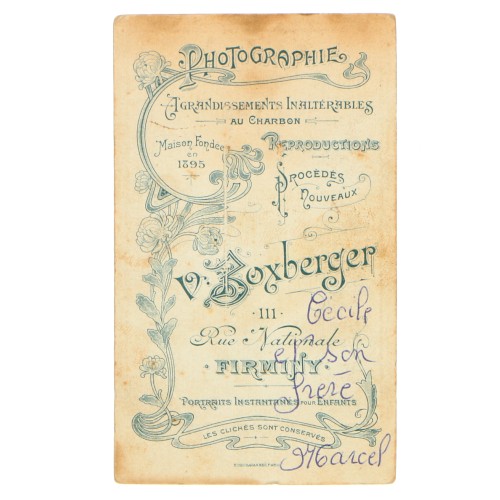 PHOTOGRAPHIE
AGRANDISSEMENTS INALTÉRABLES
AU CHARBON
MAISON FONDÉE
en
1895
REPRODUCTIONS
PROCÉDÉS
NOUVEAUX
V. Boxberger
111
Cécile
Rue Nationale
et son
FIRMINY
frère
PORTRAITS INSTANTANÉS POUR ENFANTS
LES CLICHÉS SONT CONSERVÉS
Marcel